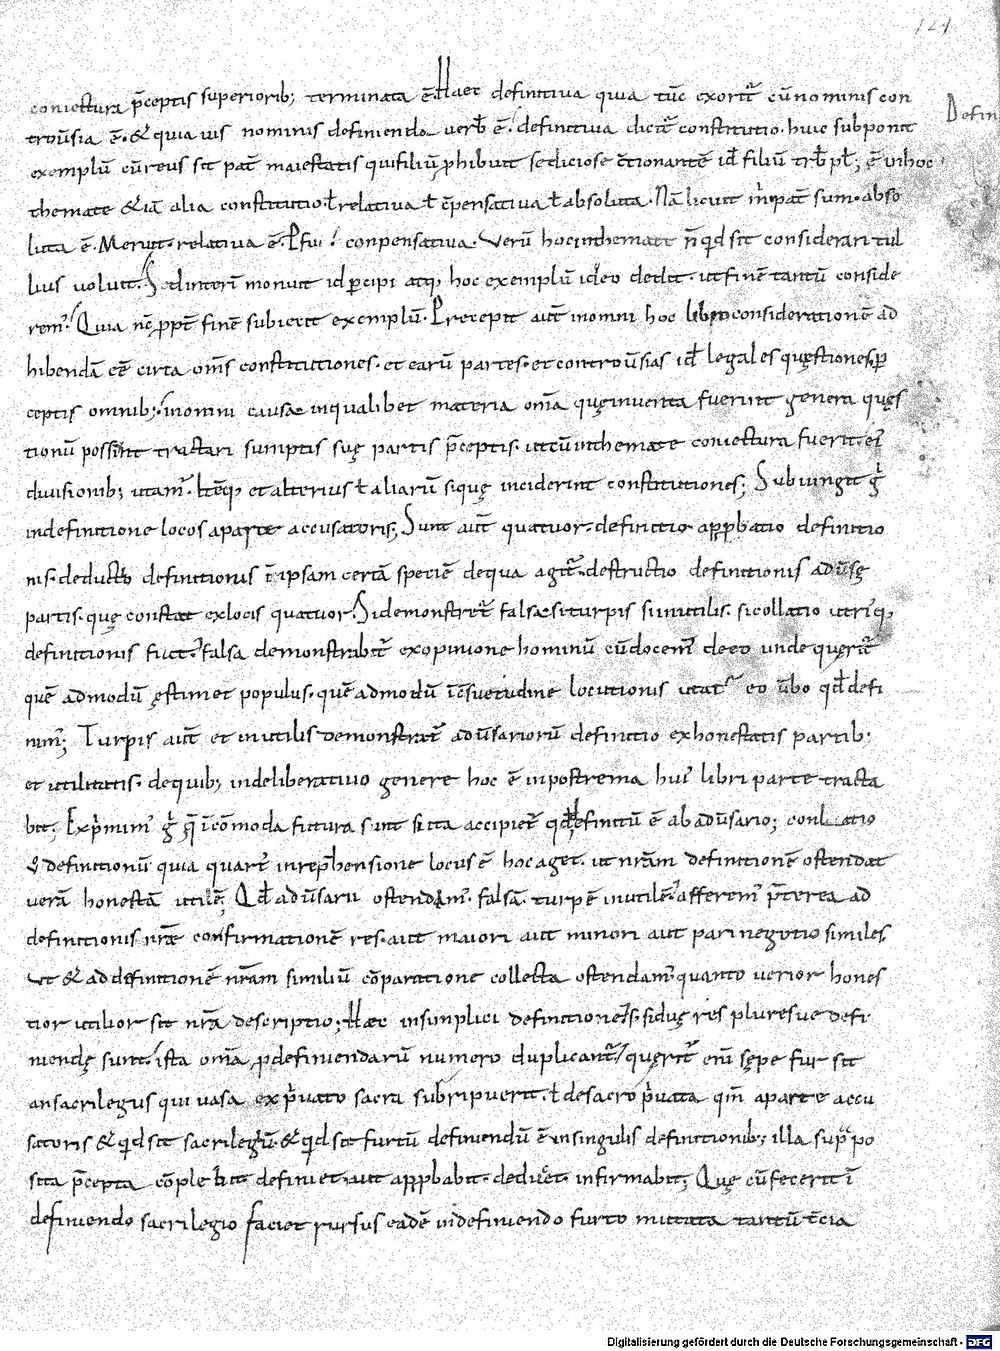 124
coniectura p̄ceptis superiorib; terminata ē. Haec definitiua quia tūc exorit̄ cū nominis con
trou̅sia ē. & quia uis nominis definienda uerb̄ ē. definitiua dicit̄ constitutio. huic subponit
Defin
exemplū cū reus sit pat̄ maiestatis qui filiū phibuit sediciose c̄tionantē id̄ filiū trib̄ pl̄; ē in hoc
themate & iā alia constitutio ł relatiua ł c̄pensatiua ł absoluta. Nā licuit absо
luta ē. Meruit. relatiua ē. conpensatiua. Verū hoc in themate n̄ qd sit considerari tul
lius uoluit. Sed interī monuit id pcipi atq; hoc exemplū ideo dedit. ut finē tantū conside
rem'. Quia nc̄ ppt̄ finē subiecit exemplū. Precepit aut̄ in omni hoc libro considerationē ad
hibendā eē circa om̄s constitutiones. et earū partes. et controu̅sias id̄ legales quęstiones. p
ceptis omnib; in omni causa in qualibet materia om̄a quę inuenta fuerint genera quęs
tionū possint tractari sumptis suę partis p̄ceptis. ut cū in themate coniectura fuerit. ei'
diuisionib; utam'. et alterius ł aliarū siquę inciderint constitutiones; Subiungit g̊
in definitione locos a parte accusatoris; Sunt aut̄ quatuor. definitio approbatio definitio
nis. deductio definitionis ī ipsam certā speciē de qua agit̄. destructio definitionis adūsę
partis. quę constat ex locis quatuor. Si demonstret̄ falsa. si turpis si inutilis. si collatio utri'q;
definitionis fuit. falsa demonstrabit̄ ex opinione hominū cū docem' de eo unde querit̄
quē admodū ęstimet populus. quē admodū ī c̄suetudine locutionis utat̄ eo ūbo qd̄ defi
nim'; Turpis aut̄ et inutilis demonstrat̄ adūsariorū definitio ex honestatis partib;
et utilitatis. de quib; in deliberatiuo genere hoc ē in postrema hui' libri parte tracta
bit; Exp̊mim' g̊ q̄ īcōmoda futura sunt si ita accipiet̄ qd definitū ē ab adūsario; conlatio
definitionū quia quart' in rep̄hensione locus ē hoc aget. ut nr̄am definitionē ostendat
uerā honestā utilē; Qd̄ adūsarii ostendam'. falsā. turpē inutilē. afferem' p̄terea ad
definitionis nr̄ę confirmationē res. aut maiori aut minori aut pari negotio similes
ut & ad definitionē nr̄am similiū cōparatione collecta ostendam' quanto uerior hones
tior utilior sit nr̄a descriptio; Haec in simplici definitione; si duę res pluresue defi
niendę sunt. ista om̄a p definiendarū numero duplicant̄. querit̄ enī sepe fur sit
an sacrilegus qui uasa ex p̊uato sacra subripuerit. ł de sacro p̊uata qm̄ a parte accu
satoris & qd sit sacrilegiū. & qd sit furtū definiendū ē in singulis definitionib; illa sup̊ po
sita p̄cepta cōplebit definiet aut approbabit. deducet. infirmabit; Quę cū fecerit ī
definiendo sacrilegio faciet rursus eadē in definiendo furto mutata tantū
Digitalisierung gefördert durch die Deutsche Forschungsgemeinschaft - DFG